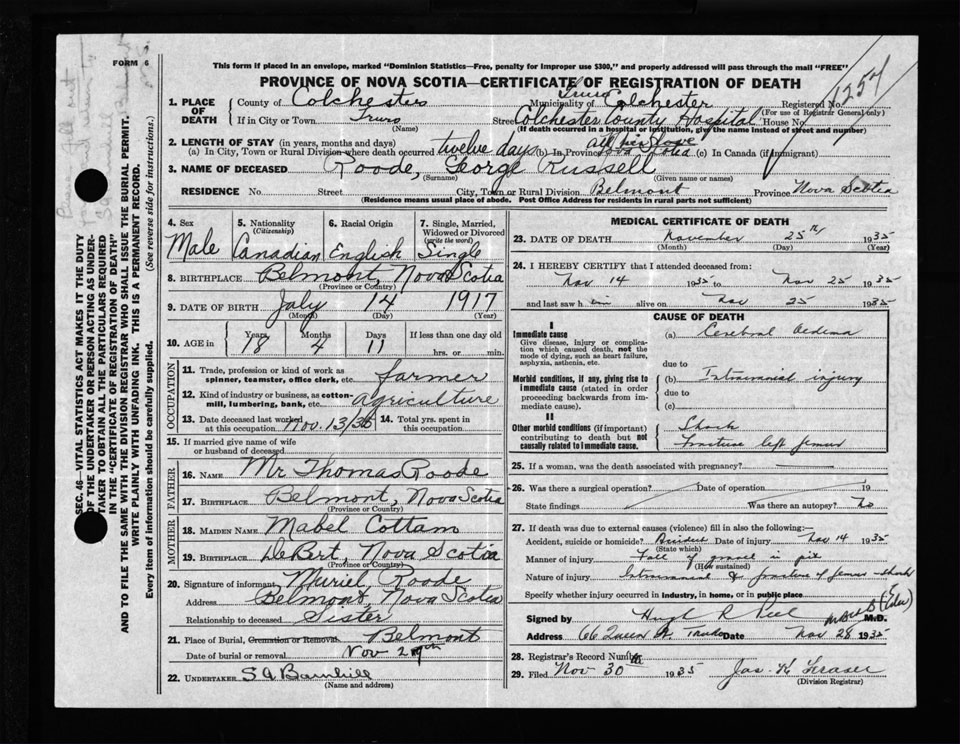 FORM 6
This form if placed in an envelope, marked "Dominion Statistics—Free, penalty for improper use $300," and properly addressed will pass through the mail "FREE"
PROVINCE OF NOVA SCOTIA—CERTIFICATE OF REGISTRATION OF DEATH
1254
1. PLACE OF DEATH
County of Colchester Municipality of Truro Colchester Registered No.
(For use of Registrar General only)
If in City or Town Truro (Name) Street Colchester County Hospital House No.
(If death occurred in a hospital or institution, give the name instead of street and number)
2. LENGTH OF STAY (in years, months and days)
(a) In City, Town or Rural Division where death occurred twelve days (b) In Province All his life Nova Scotia (c) In Canada (if immigrant)
3. NAME OF DECEASED Roode, George Russell
(Surname) (Given name or names)
RESIDENCE No. Street City, Town or Rural Division Belmont Province Nova Scotia
(Residence means usual place of abode. Post Office Address for residents in rural parts not sufficient)
4. Sex Male
5. Nationality (Citizenship) Canadian
6. Racial Origin English
7. Single, Married, Widowed or Divorced (write the word) Single
8. BIRTHPLACE Belmont, Nova Scotia
(Province or Country)
9. DATE OF BIRTH July 14 1917
(Month) (Day) (Year)
10. AGE in Years 18 Months 4 Days 11 If less than one day old hrs. or min.
OCCUPATION
11. Trade, profession or kind of work as spinner, teamster, office clerk, etc. farmer
12. Kind of industry or business, as cotton-mill, lumbering, bank, etc. agriculture
13. Date deceased last worked at this occupation Nov. 13/35
14. Total yrs. spent in this occupation
15. If married give name of wife or husband of deceased
FATHER
16. NAME Mr Thomas Roode
17. BIRTHPLACE Belmont, Nova Scotia
(Province or Country)
MOTHER
18. MAIDEN NAME Mabel Cottam
19. BIRTHPLACE DeBert, Nova Scotia
(Province or Country)
20. Signature of informant Muriel Roode
Address Belmont, Nova Scotia
Relationship to deceased Sister
21. Place of Burial, Cremation or Removal Belmont
Date of burial or removal Nov 29th
22. UNDERTAKER S A Barnhill
(Name and address)
MEDICAL CERTIFICATE OF DEATH
23. DATE OF DEATH November 25th 1935
(Month) (Day) (Year)
24. I HEREBY CERTIFY that I attended deceased from
Nov 14 1935 to Nov 25 1935
and last saw him alive on Nov 25 1935
CAUSE OF DEATH
I
Immediate cause
Give disease, injury or complication which caused death, not the mode of dying, such as heart failure, asphyxia, asthenia, etc.
(a) Cerebral Oedema
due to
Morbid conditions, if any, giving rise to immediate cause (stated in order proceeding backwards from immediate cause).
(b) Intracranial injury
due to
(c)
II
Other morbid conditions (if important) contributing to death but not causally related to immediate cause.
Shock
fracture left femur
25. If a woman, was the death associated with pregnancy?
26. Was there a surgical operation? Date of operation 19
State findings Was there an autopsy? No
27. If death was due to external causes (violence) fill in also the following:—
Accident, suicide or homicide? Accident Date of injury Nov 14 1935
(State which)
Manner of injury Fall of gravel in pit
(How sustained)
Nature of injury Intracranial & fracture of femur - shock
Specify whether injury occurred in industry, in home, or in public place
Signed by Hugh R Peel M.D.
Address 66 Queen St Truro Date Nov 28 1935
28. Registrar's Record Number
29. Filed Nov 30th 1935 Jas. K Fraser
(Division Registrar)
SEC. 46—VITAL STATISTICS ACT MAKES IT THE DUTY
OF THE UNDERTAKER OR PERSON ACTING AS UNDER-
TAKER TO OBTAIN ALL THE PARTICULARS REQUIRED
IN THE "CERTIFICATE OF REGISTRATION OF DEATH"
AND TO FILE THE SAME WITH THE DIVISION REGISTRAR WHO SHALL ISSUE THE BURIAL PERMIT.
WRITE PLAINLY WITH UNFADING INK. THIS IS A PERMANENT RECORD.
Every item of information should be carefully supplied. (See reverse side for instructions.)